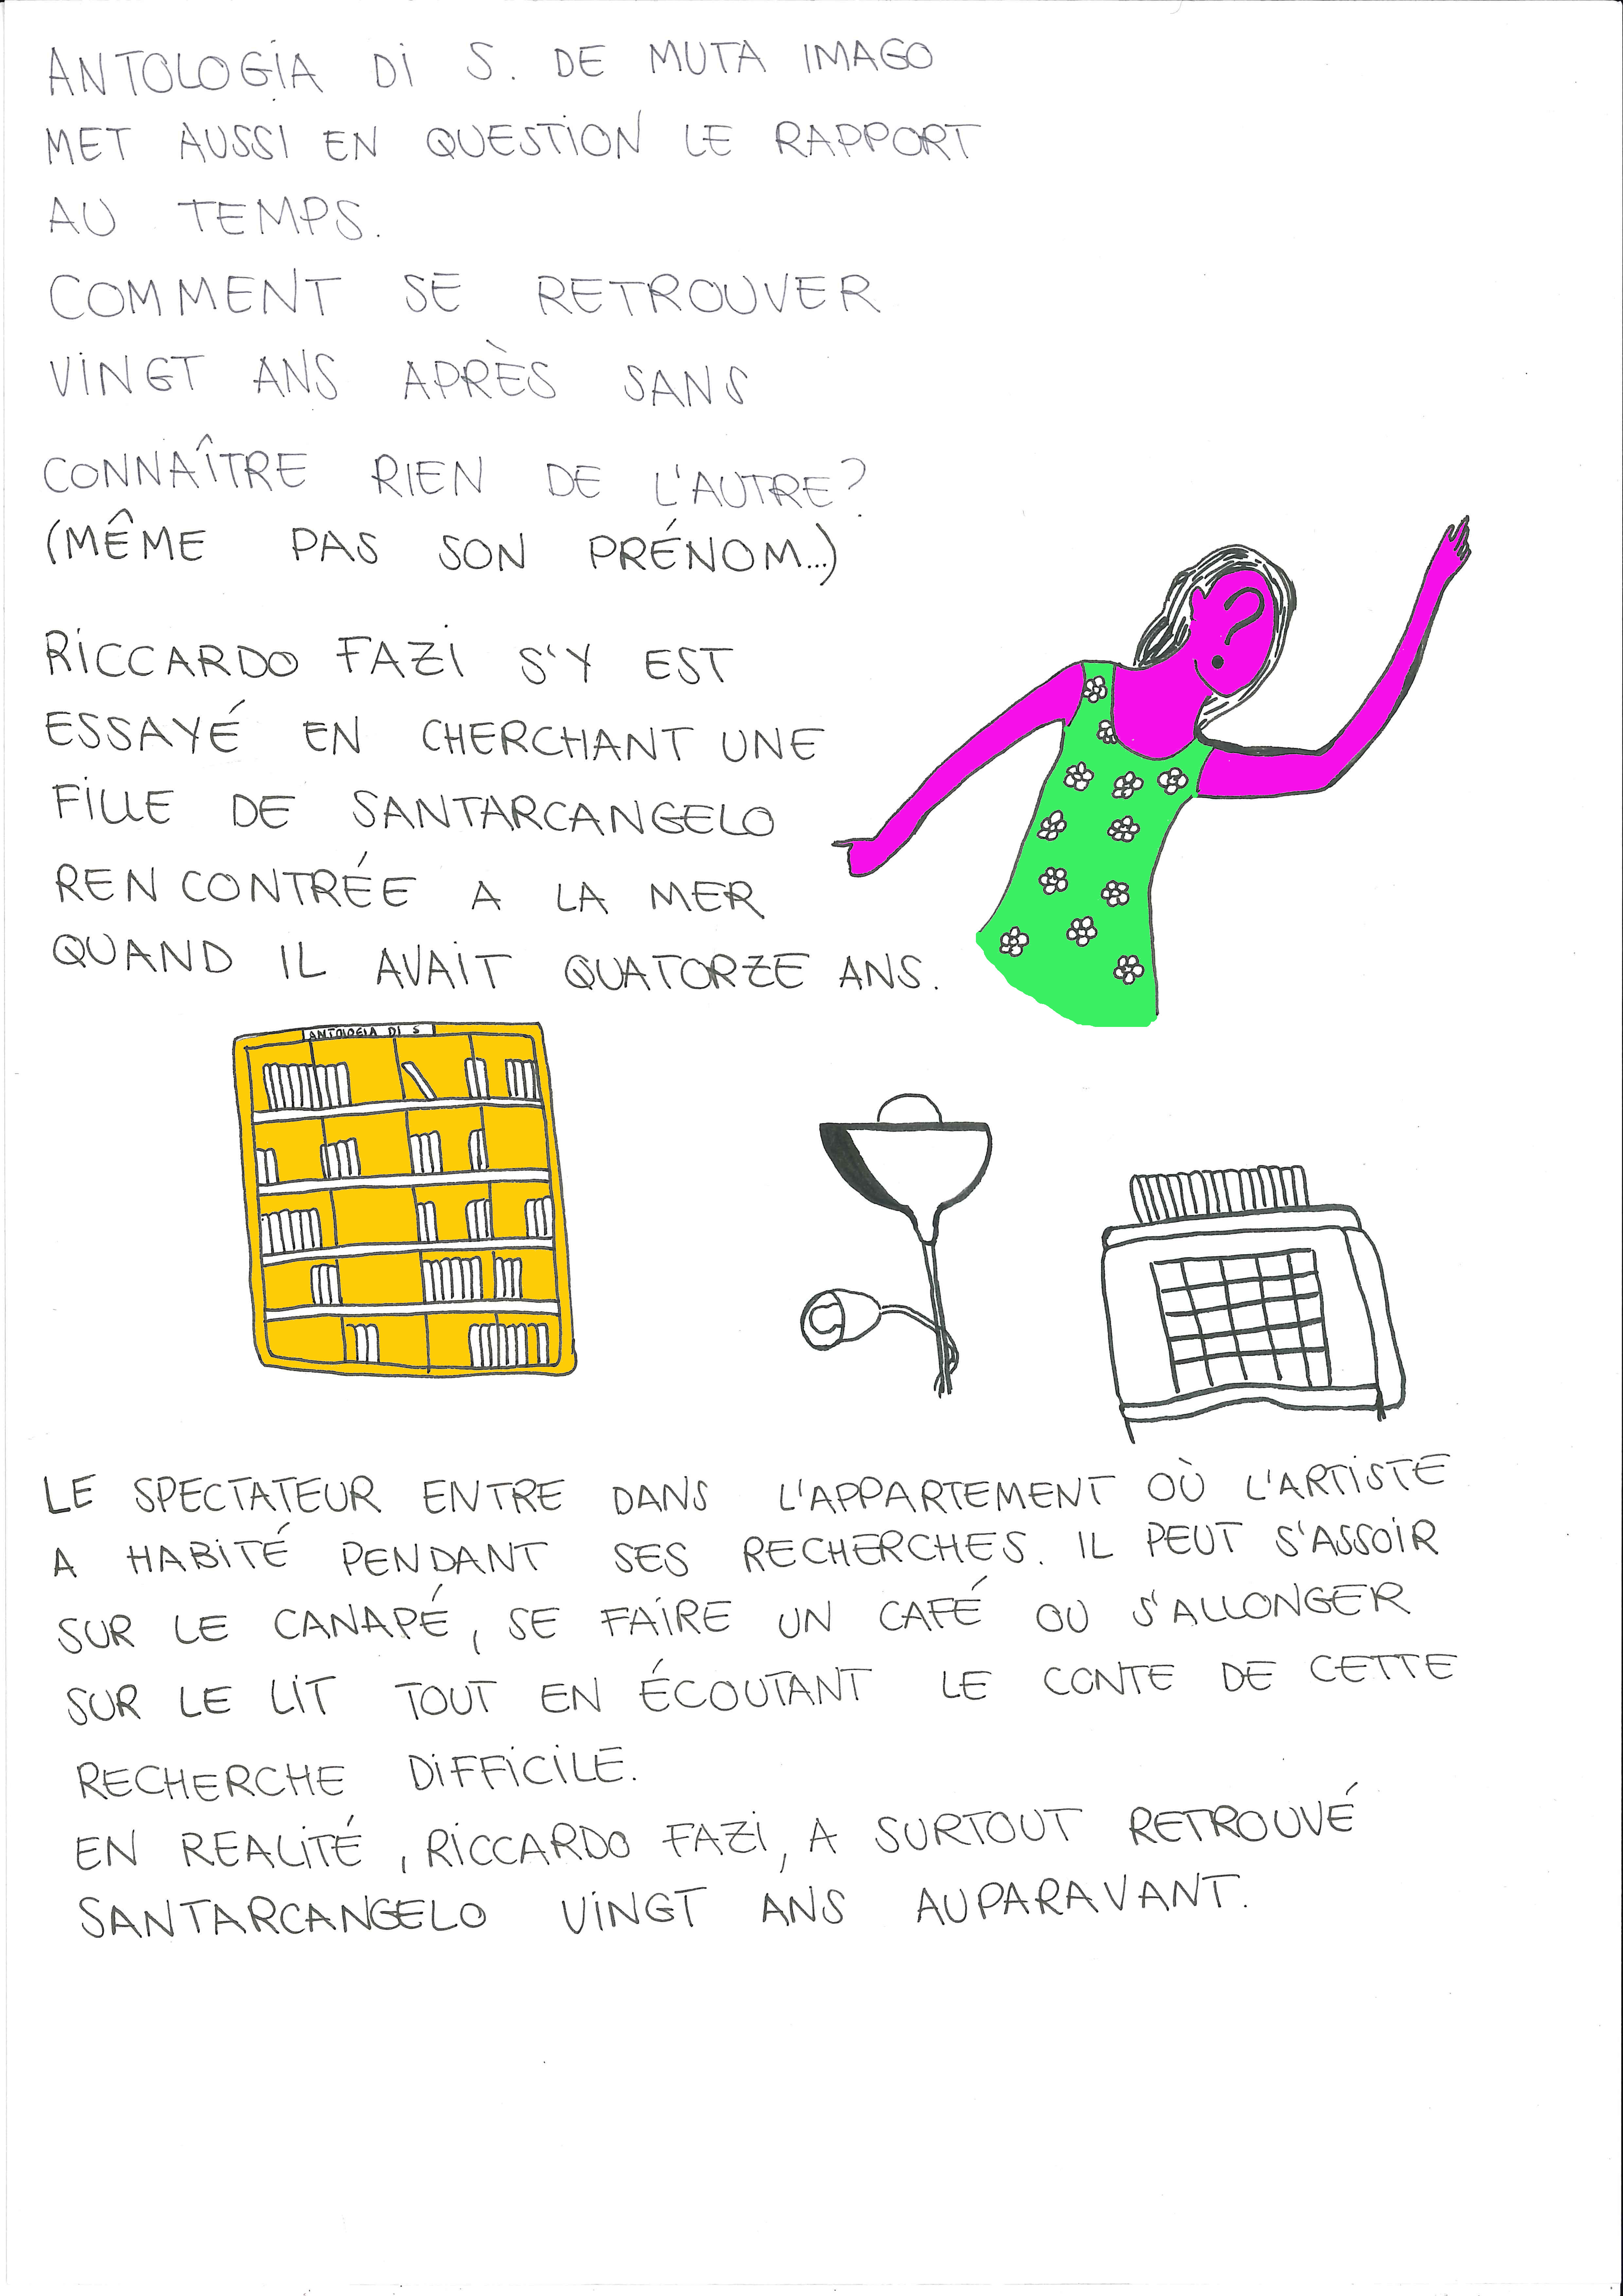 ANTOLOGIA DI S. DE MUTA IMAGO
MET AUSSI EN QUESTION LE RAPPORT
AU TEMPS.
COMMENT SE RETROUVER
VINGT ANS APRÈS SANS
CONNAÎTRE RIEN DE L'AUTRE?
(MÊME PAS SON PRÉNOM...)
RICCARDO FAZI S'Y EST
ESSAYÉ EN CHERCHANT UNE
FILLE DE SANTARCANGELO
RENCONTRÉE A LA MER
QUAND IL AVAIT QUATORZE ANS.
ANTOLOGIA DI S
LE SPECTATEUR ENTRE DANS L'APPARTEMENT OÙ L'ARTISTE
A HABITÉ PENDANT SES RECHERCHES. IL PEUT S'ASSOIR
SUR LE CANAPÉ, SE FAIRE UN CAFÉ OU S'ALLONGER
SUR LE LIT TOUT EN ÉCOUTANT LE CONTE DE CETTE
RECHERCHE DIFFICILE.
EN REALITÉ, RICCARDO FAZI, A SURTOUT RETROUVÉ
SANTARCANGELO VINGT ANS AUPARAVANT.